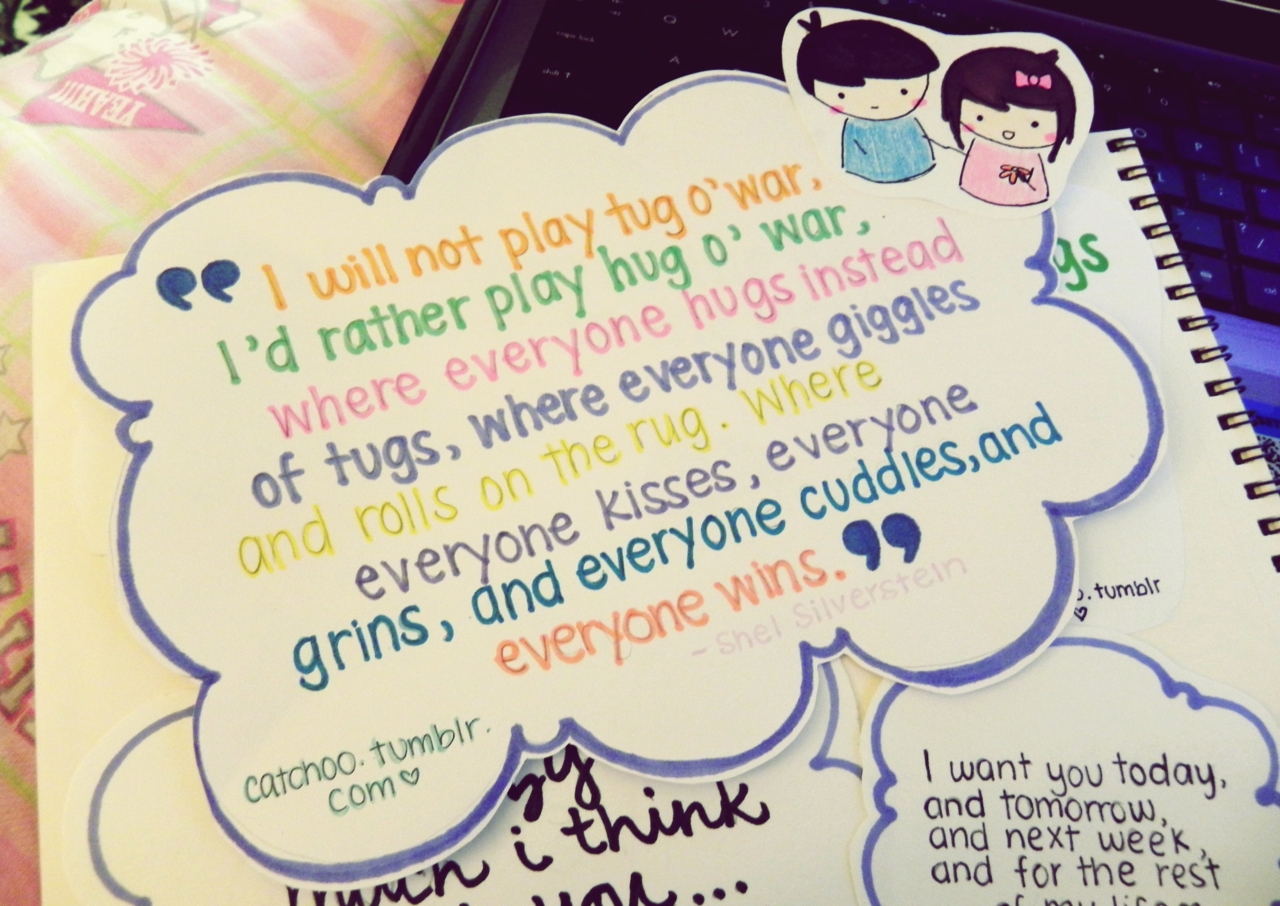 YEAH!!!
“I will not play tug o' war,
I'd rather play hug o' war,
where everyone hugs instead
of tugs, where everyone giggles
and rolls on the rug. Where
everyone kisses, everyone
grins, and everyone cuddles, and
everyone wins.”
- Shel Silverstein
catchoo.tumblr.
com♡
gs
o.tumblr
♡
zy
much i think
you...
I want you today,
and tomorrow,
and next week,
and for the rest
of my life
caps lock
shift ↑
Q
W
A